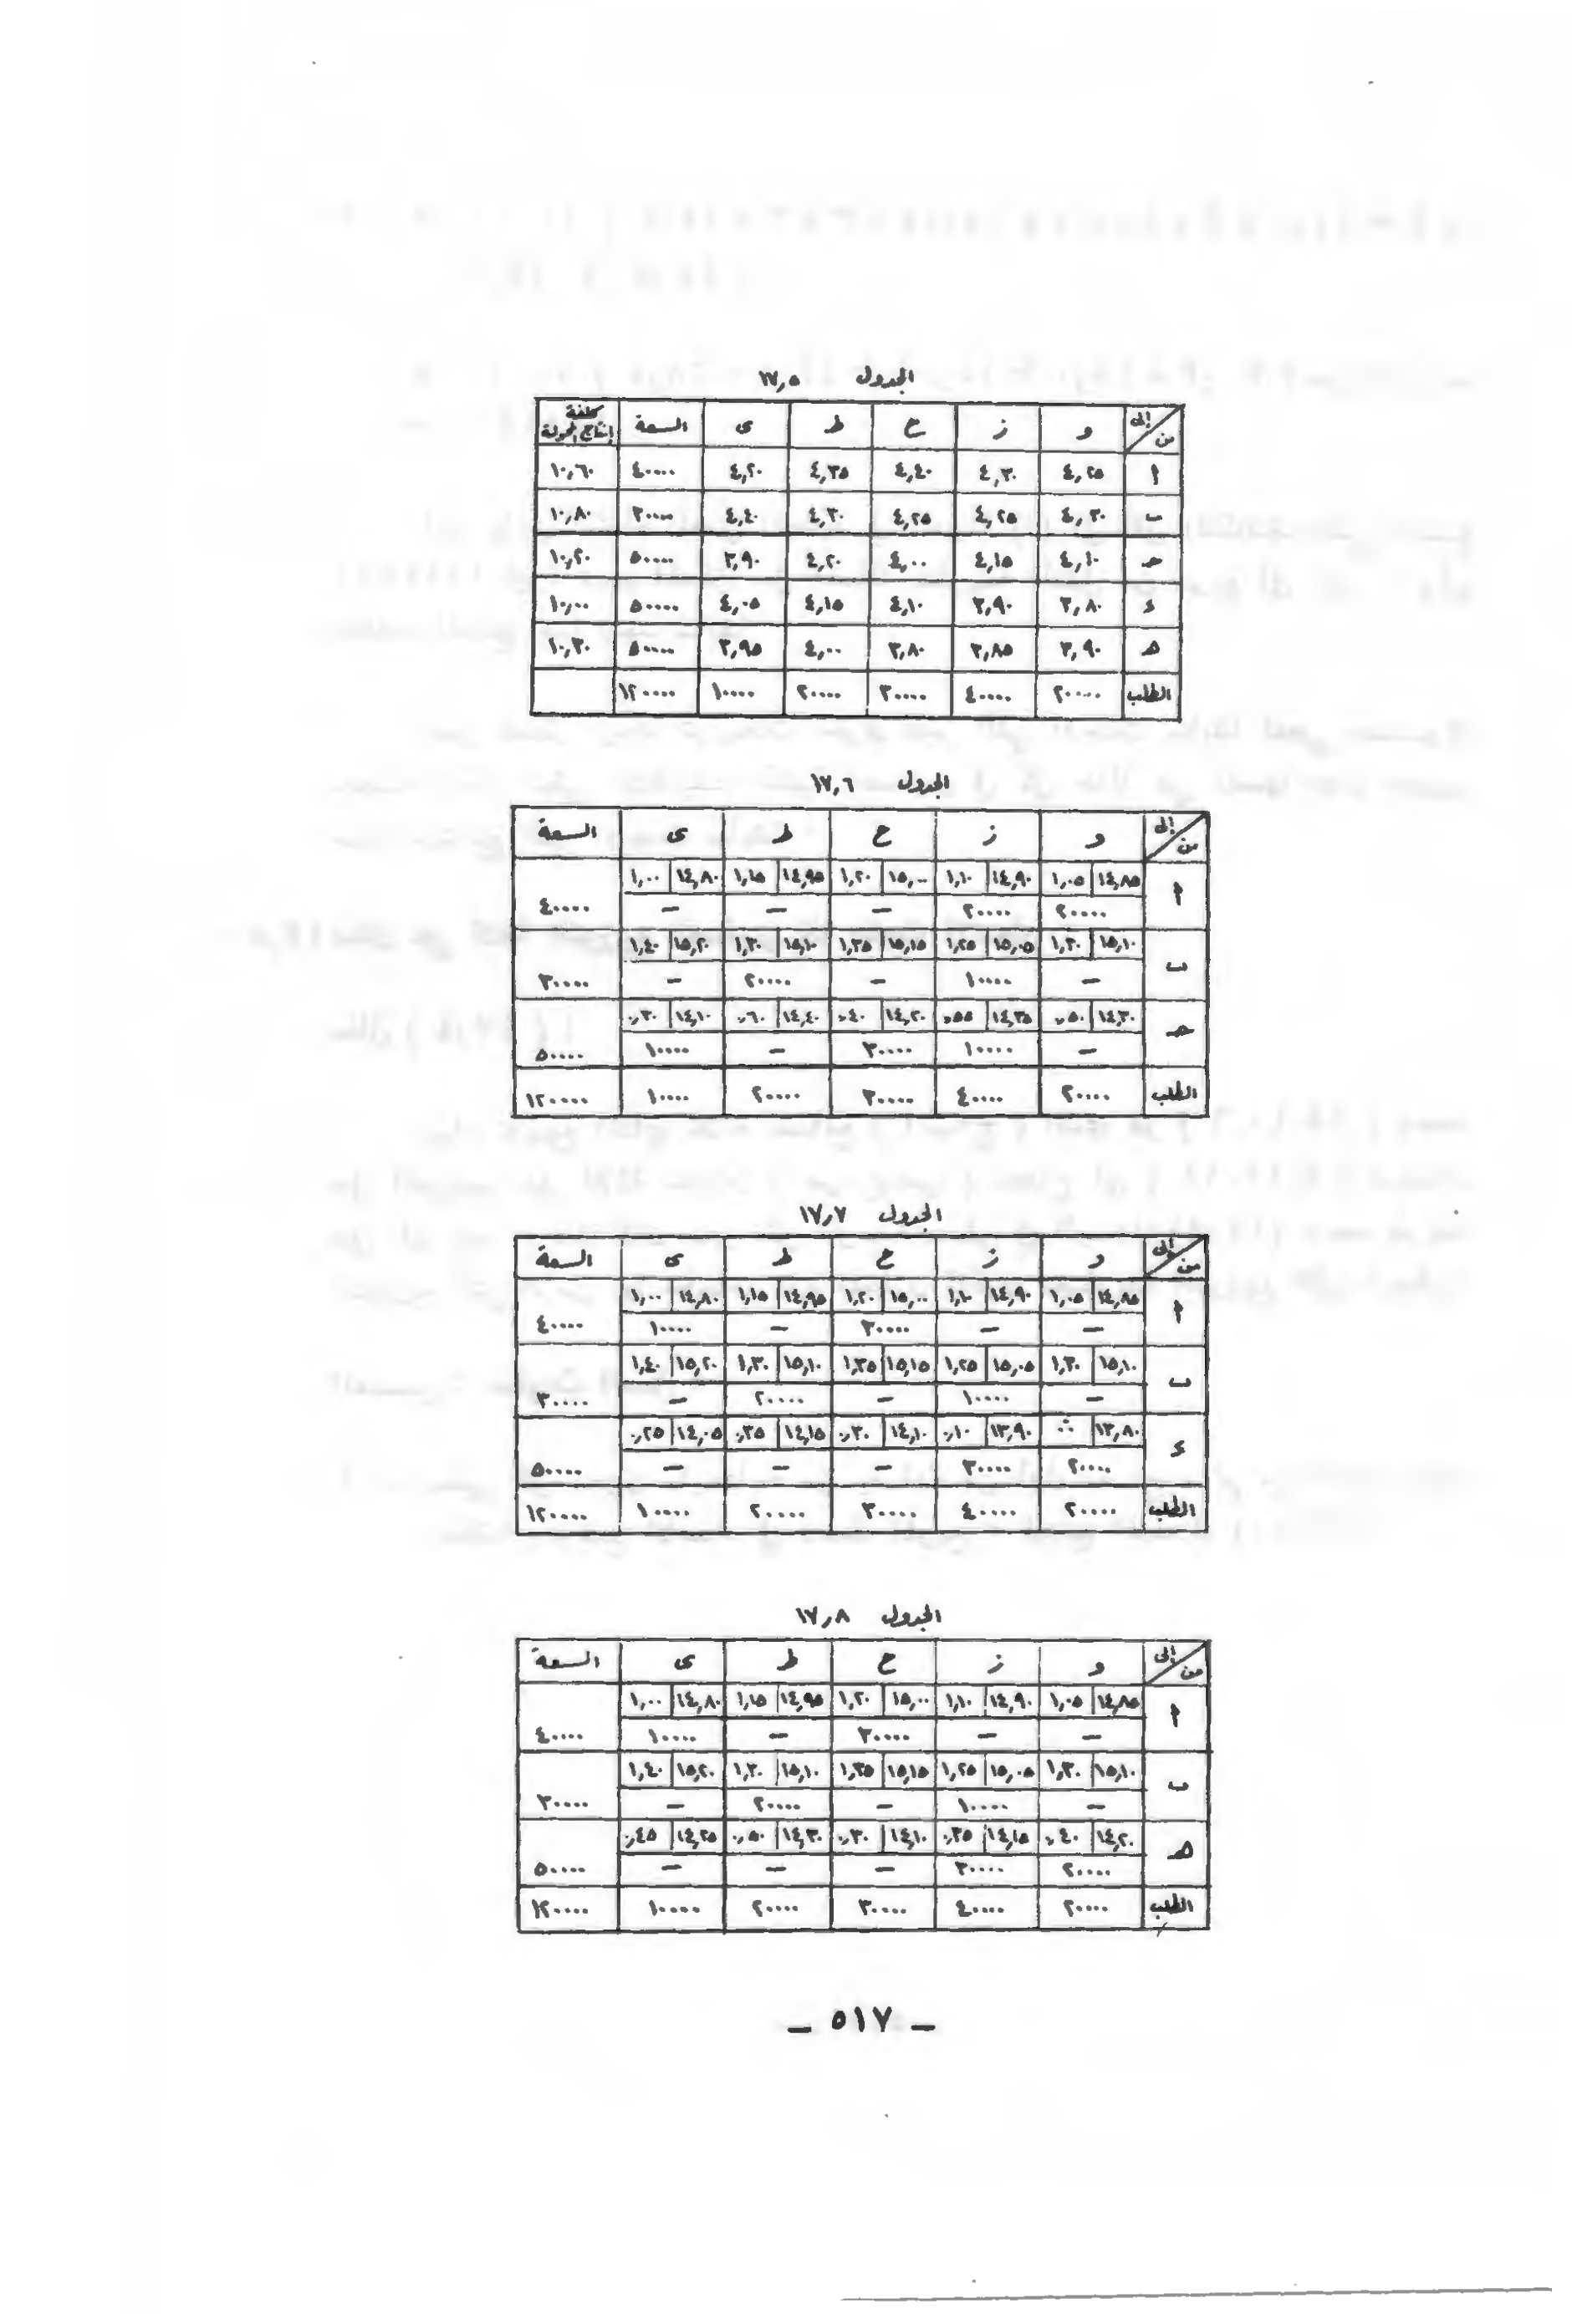 الجدول ١٧,٥
إلى من و ز ح ط ى السعة كلفة إنتاج الحمولة
أ ٤,٢٥ ٤,٣٠ ٤,٤٠ ٤,٣٥ ٤,٢٠ ٤٠٠٠٠ ١٠,٦٠
ب ٤,٣٠ ٤,٢٥ ٤,٢٥ ٤,٣٠ ٤,٤٠ ٣٠٠٠٠ ١٠,٨٠
حـ ٤,١٠ ٤,١٥ ٤,٠٠ ٤,٢٠ ٣,٩٠ ٥٠٠٠٠ ١٠,٢٠
ء ٣,٨٠ ٣,٩٠ ٤,١٠ ٤,١٥ ٤,٠٥ ٥٠٠٠٠ ١٠,٠٠
هـ ٣,٩٠ ٣,٨٥ ٣,٨٠ ٤,٠٠ ٣,٩٥ ٥٠٠٠٠ ١٠,٣٠
الطلب ٢٠٠٠٠ ٤٠٠٠٠ ٣٠٠٠٠ ٢٠٠٠٠ ١٠٠٠٠ ١٢٠٠٠٠
الجدول ١٧,٦
إلى من و ز ح ط ى السعة
١٤,٨٥ ١,٠٥ ١٤,٩٠ ١,١٠ ١٥,٠٠ ١,٢٠ ١٤,٩٥ ١,١٥ ١٤,٨٠ ١,٠٠
أ ٢٠٠٠٠ ٢٠٠٠٠ — — — ٤٠٠٠٠
١٥,١٠ ١,٣٠ ١٥,٠٥ ١,٢٥ ١٥,١٥ ١,٣٥ ١٥,١٠ ١,٣٠ ١٥,٢٠ ١,٤٠
ب — ١٠٠٠٠ — ٢٠٠٠٠ — ٣٠٠٠٠
١٤,٣٠ ,٥٠ ١٤,٣٥ ,٥٥ ١٤,٢٠ ,٤٠ ١٤,٤٠ ,٦٠ ١٤,١٠ ,٣٠
حـ — ١٠٠٠٠ ٣٠٠٠٠ — ١٠٠٠٠ ٥٠٠٠٠
الطلب ٢٠٠٠٠ ٤٠٠٠٠ ٣٠٠٠٠ ٢٠٠٠٠ ١٠٠٠٠ ١٢٠٠٠٠
الجدول ١٧,٧
إلى من و ز ح ط ى السعة
١٤,٨٥ ١,٠٥ ١٤,٩٠ ١,١٠ ١٥,٠٠ ١,٢٠ ١٤,٩٥ ١,١٥ ١٤,٨٠ ١,٠٠
أ — — ٣٠٠٠٠ — ١٠٠٠٠ ٤٠٠٠٠
١٥,١٠ ١,٣٠ ١٥,٠٥ ١,٢٥ ١٥,١٥ ١,٣٥ ١٥,١٠ ١,٣٠ ١٥,٢٠ ١,٤٠
ب — ١٠٠٠٠ — ٢٠٠٠٠ — ٣٠٠٠٠
١٣,٨٠ ١٣,٩٠ ,١٠ ١٤,١٠ ,٣٠ ١٤,١٥ ,٣٥ ١٤,٠٥ ,٢٥
ء ٢٠٠٠٠ ٣٠٠٠٠ — — — ٥٠٠٠٠
الطلب ٢٠٠٠٠ ٤٠٠٠٠ ٣٠٠٠٠ ٢٠٠٠٠ ١٠٠٠٠ ١٢٠٠٠٠
الجدول ١٧,٨
إلى من و ز ح ط ى السعة
١٤,٨٥ ١,٠٥ ١٤,٩٠ ١,١٠ ١٥,٠٠ ١,٢٠ ١٤,٩٥ ١,١٥ ١٤,٨٠ ١,٠٠
أ — — ٣٠٠٠٠ — ١٠٠٠٠ ٤٠٠٠٠
١٥,١٠ ١,٣٠ ١٥,٠٥ ١,٢٥ ١٥,١٥ ١,٣٥ ١٥,١٠ ١,٣٠ ١٥,٢٠ ١,٤٠
ب — ١٠٠٠٠ — ٢٠٠٠٠ — ٣٠٠٠٠
١٤,٢٠ ,٤٠ ١٤,١٥ ,٣٥ ١٤,١٠ ,٣٠ ١٤,٣٠ ,٥٠ ١٤,٢٥ ,٤٥
هـ ٢٠٠٠٠ ٣٠٠٠٠ — — — ٥٠٠٠٠
الطلب ٢٠٠٠٠ ٤٠٠٠٠ ٣٠٠٠٠ ٢٠٠٠٠ ١٠٠٠٠ ١٢٠٠٠٠
— ٥١٧ —